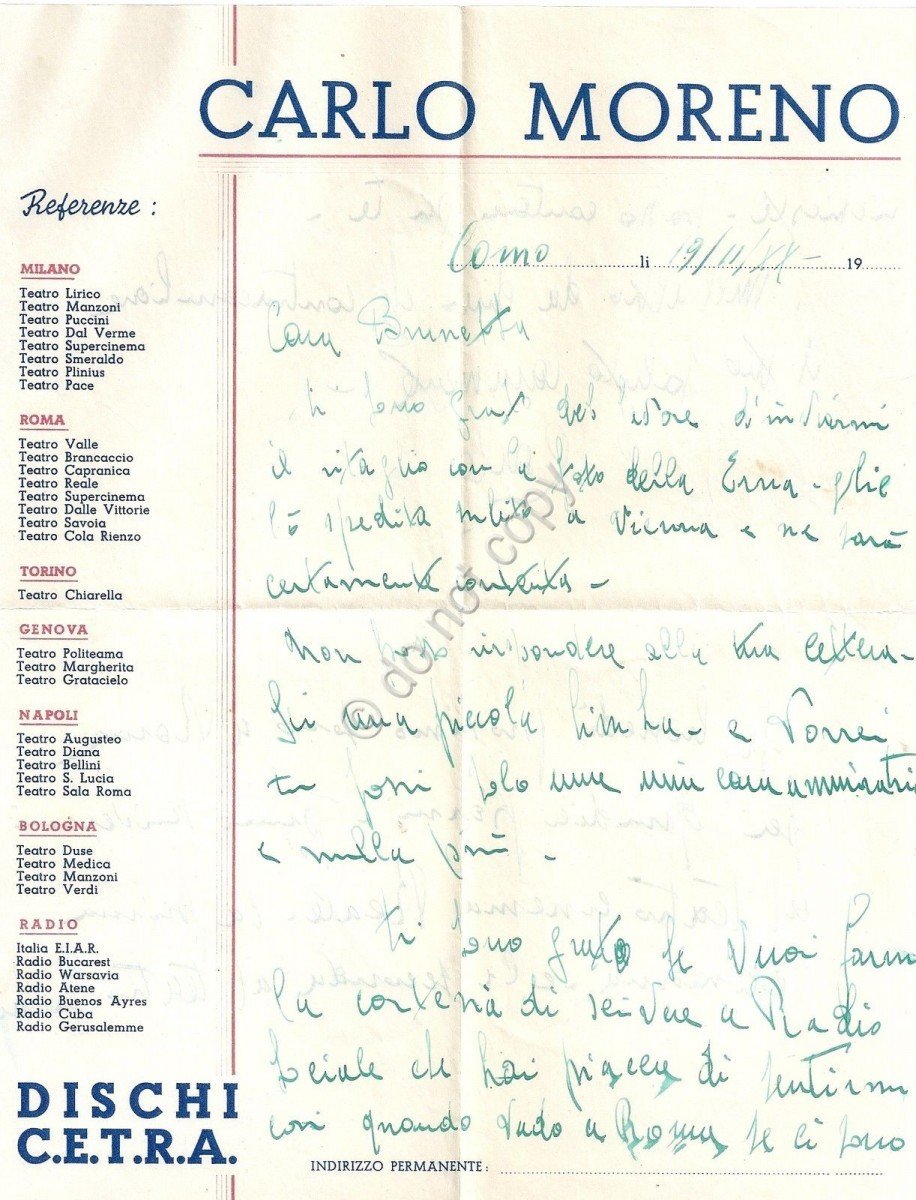 CARLO MORENO
Referenze :
MILANO
Teatro Lirico
Teatro Manzoni
Teatro Puccini
Teatro Dal Verme
Teatro Supercinema
Teatro Smeraldo
Teatro Plinius
Teatro Pace
ROMA
Teatro Valle
Teatro Brancaccio
Teatro Capranica
Teatro Reale
Teatro Supercinema
Teatro Dalle Vittorie
Teatro Savoia
Teatro Cola Rienzo
TORINO
Teatro Chiarella
GENOVA
Teatro Politeama
Teatro Margherita
Teatro Gratacielo
NAPOLI
Teatro Augusteo
Teatro Diana
Teatro Bellini
Teatro S. Lucia
Teatro Sala Roma
BOLOGNA
Teatro Duse
Teatro Medica
Teatro Manzoni
Teatro Verdi
RADIO
Italia E.I.A.R.
Radio Bucarest
Radio Warsavia
Radio Atene
Radio Buenos Ayres
Radio Cuba
Radio Gerusalemme
DISCHI
C.E.T.R.A.
Como li 19/11/XX - 19
Cara Brunetta
ti sono d'inviarmi
il ritaglio con la foto della Erna - glie
l'ò spedita subito a Vienna e ne sarà
certamente contenta -
Non posso rispondere alla tua lettera -
Sei una piccola bimba - e vorrei
tu fossi solo una mia cara ammiratri
e nulla più -
ti sono grato se vuoi farmi
la cortesia di scrivere a Radio
che hai piacere di sentirmi
così quando vado a Roma se ci sono
INDIRIZZO PERMANENTE :
© do not copy